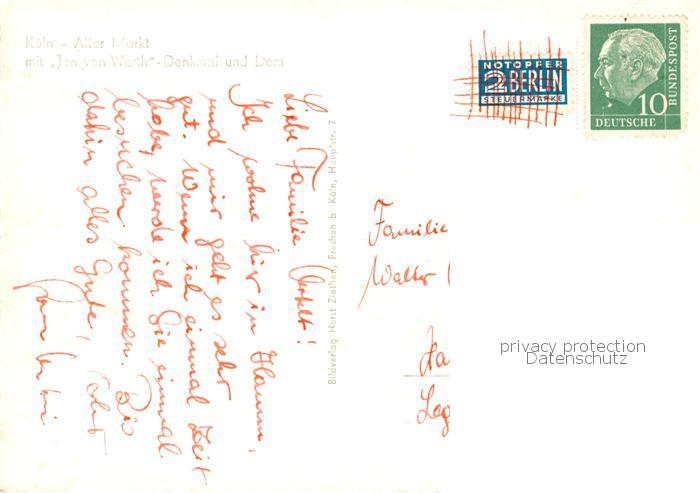 Köln - Alter Markt
mit „Jan von Werth"-Denkmal und Dom
NOTOPFER
2 BERLIN
STEUERMARKE
10
DEUTSCHE
BUNDESPOST
Liebe Familie
Ich wohne hier in Hamm,
und mir geht es sehr
gut. Wenn ich einmal Zeit
habe, werde ich Sie einmal
besuchen kommen. Bis
dahin alles Gute!
Bildverlag Horst Ziethen, Frechen b Köln, Hauptstr. 7
Familie
Walter
Ha
Lag
privacy protection
Datenschutz